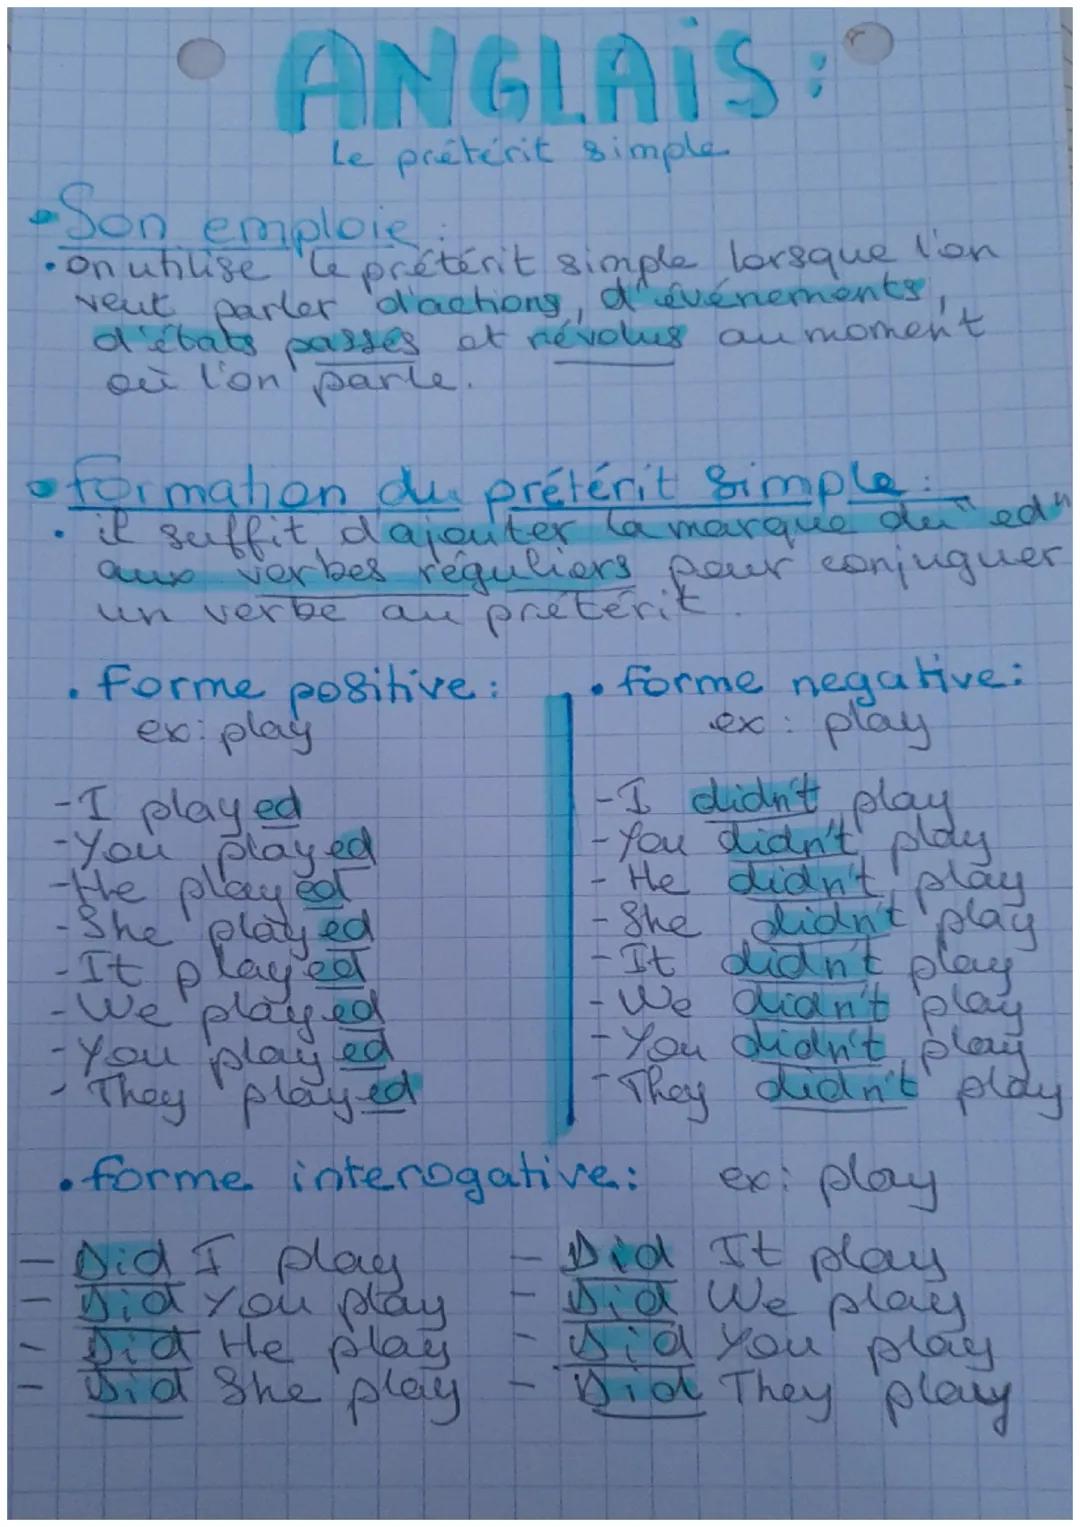 ANGLAIS :
Le prétérit simple
• Son emploie :
• on utilise le prétérit simple lorsque l'on
veut parler d'actions, d'événements,
d'états passés et révolus au moment
où l'on parle.
• formation du prétérit simple :
• il suffit d'ajouter la marque du "ed"
aux verbes réguliers pour conjuguer
un verbe au prétérit.
• forme positive :
ex : play
- I played
- You played
- He played
- She played
- It played
- We played
- You played
- They played
• forme negative :
ex : play
- I didn't play
- You didn't play
- He didn't play
- She didn't play
- It didn't play
- We didn't play
- You didn't play
- They didn't play
• forme interogative : ex : play
- Did I play
- Did You play
- Did He play
- Did She play
- Did It play
- Did We play
- Did You play
- Did They play